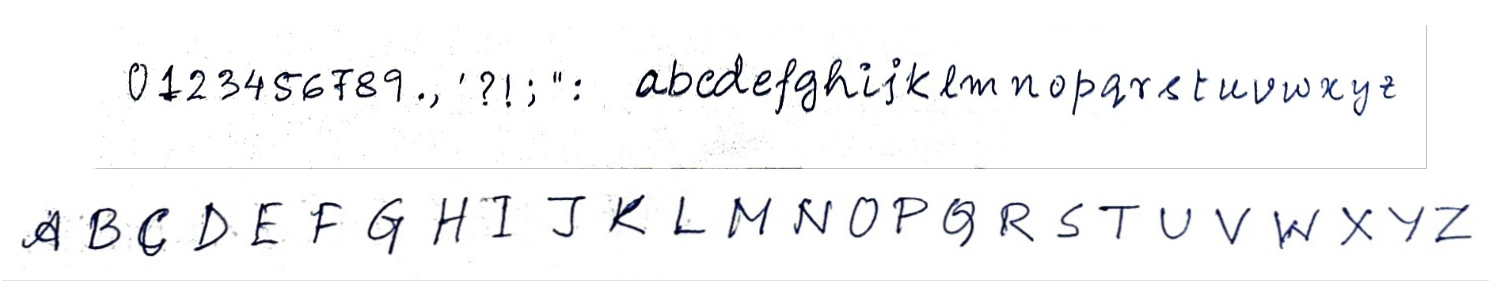 0123456789.,'?!;": abcdefghijklmnopqrstuvwxyz
A B C D E F G H I J K L M N O P Q R S T U V W X Y Z